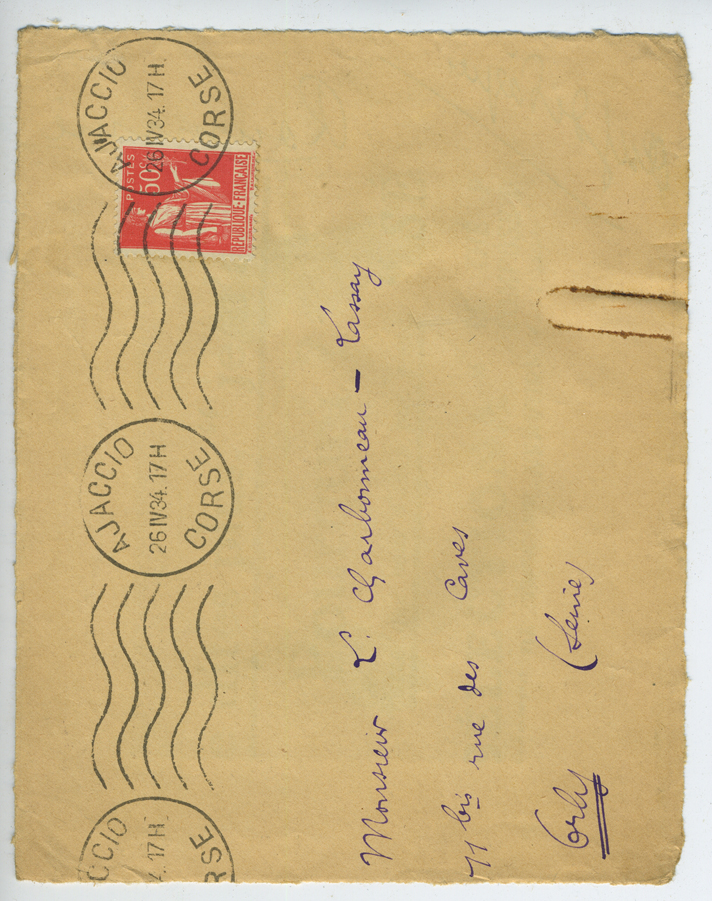 AJACCIO
26 IV 34. 17 H.
CORSE
POSTES
50c
REPUBLIQUE-FRANÇAISE
AJACCIO
26 IV 34. 17 H
CORSE
CCIO
4. 17 H
RSE
Monsieur L. Charbonneau - Lassay
11 bis rue des Caves
Orly (Seine)